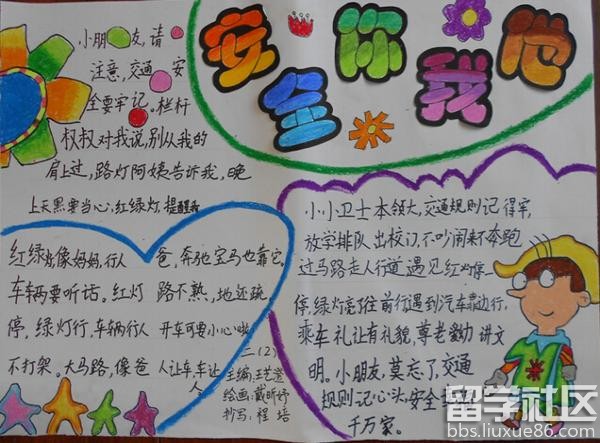 安全你我他
小朋友,请
注意,交通安
全要牢记。栏杆
叔叔对我说,别从我的
肩上过,路灯阿姨告诉我,晚
上天黑要当心,红绿灯,提醒我
红绿灯像妈妈,行人
车辆要听话。红灯
停,绿灯行,车辆行人
不打架。大马路,像爸
爸,奔驰宝马也靠它。
路不熟,地还疏,
开车可要小心啦
人让车,车让
人
二(2)
主编:王艺萱
绘画:戴昕婷
抄写:程培
小小卫士本领大,交通规则记得牢,
放学排队出校门,不吵闹来不奔跑
过马路走人行道,遇见红灯停一
停,绿灯亮了往前行遇到汽车靠边行,
乘车礼让有礼貌,尊老爱幼讲文
明。小朋友,莫忘了,交通
规则记心头,安全
千万家。
留学社区
bbs.liuxue86.com